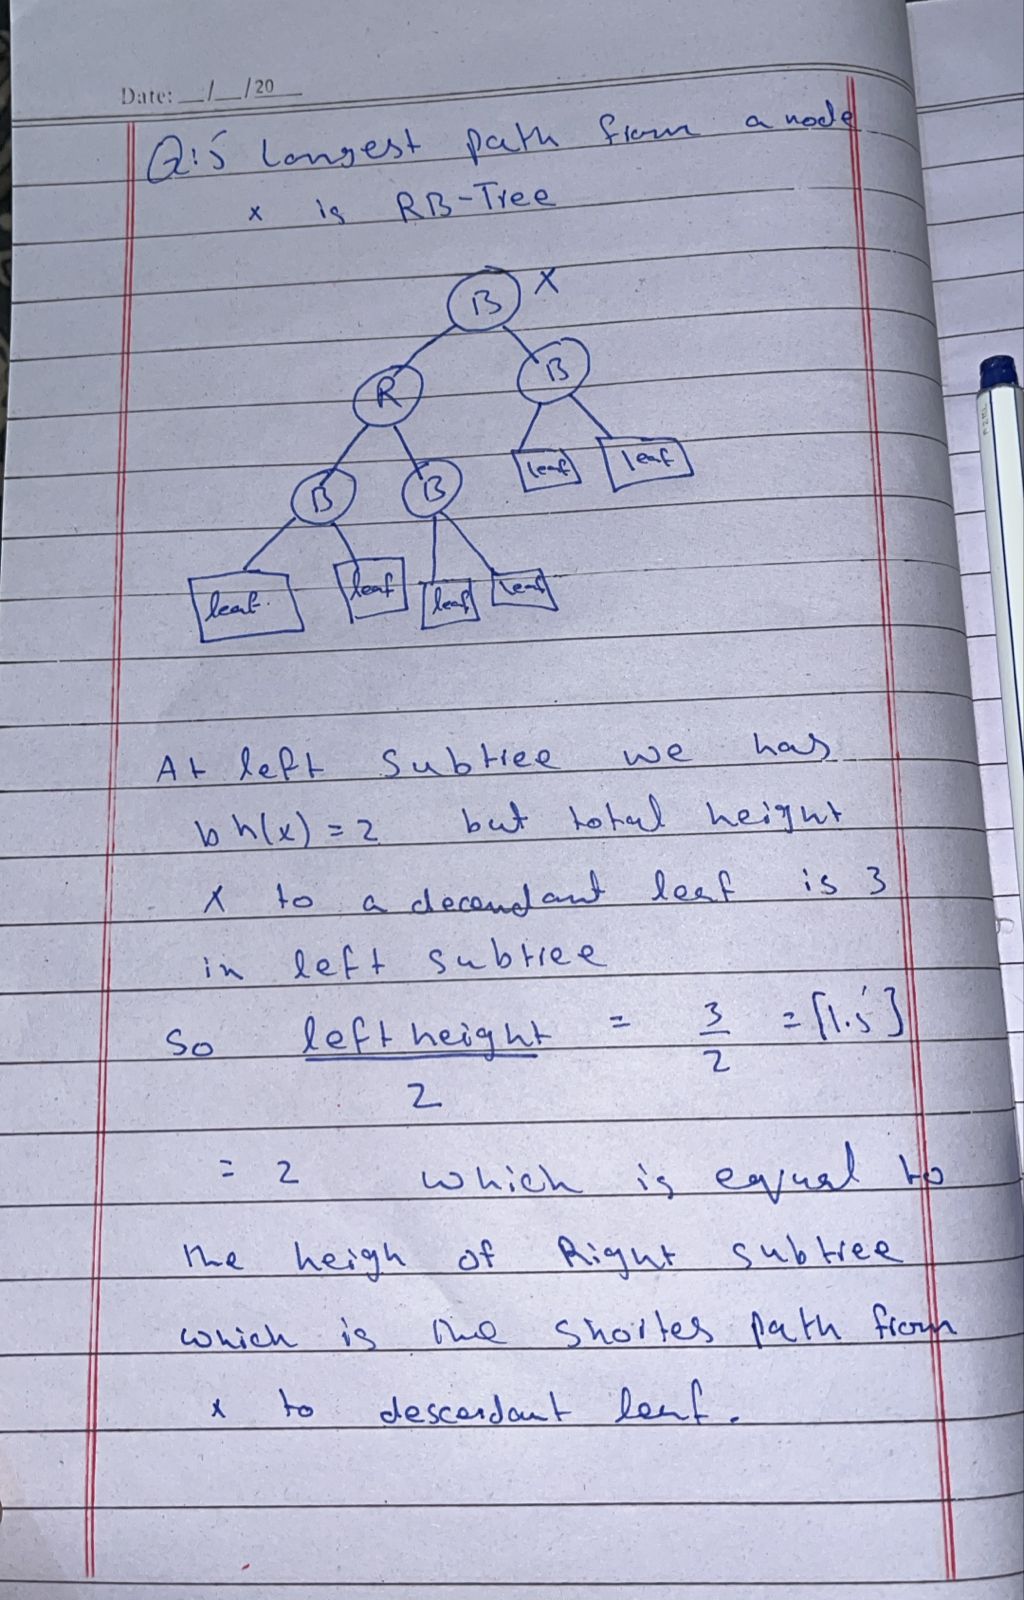 Date: __/__/20__
Q:5 Longest path from a node
x is RB-Tree
B X
R B
B B leaf leaf
leaf leaf leaf leaf
At left Subtree we has
bh(x) = 2 but total height
X to a decendant leaf is 3
in left subtree
So left height = 3 = ⌈1.5⌉
2 2
= 2 which is equal to
the heigh of Right subtree
which is the shortes path from
x to descendant leaf.